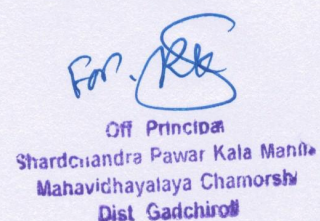 For.
Off Principal
Shardchandra Pawar Kala Mahila
Mahavidhayalaya Chamorshi
Dist Gadchiroli